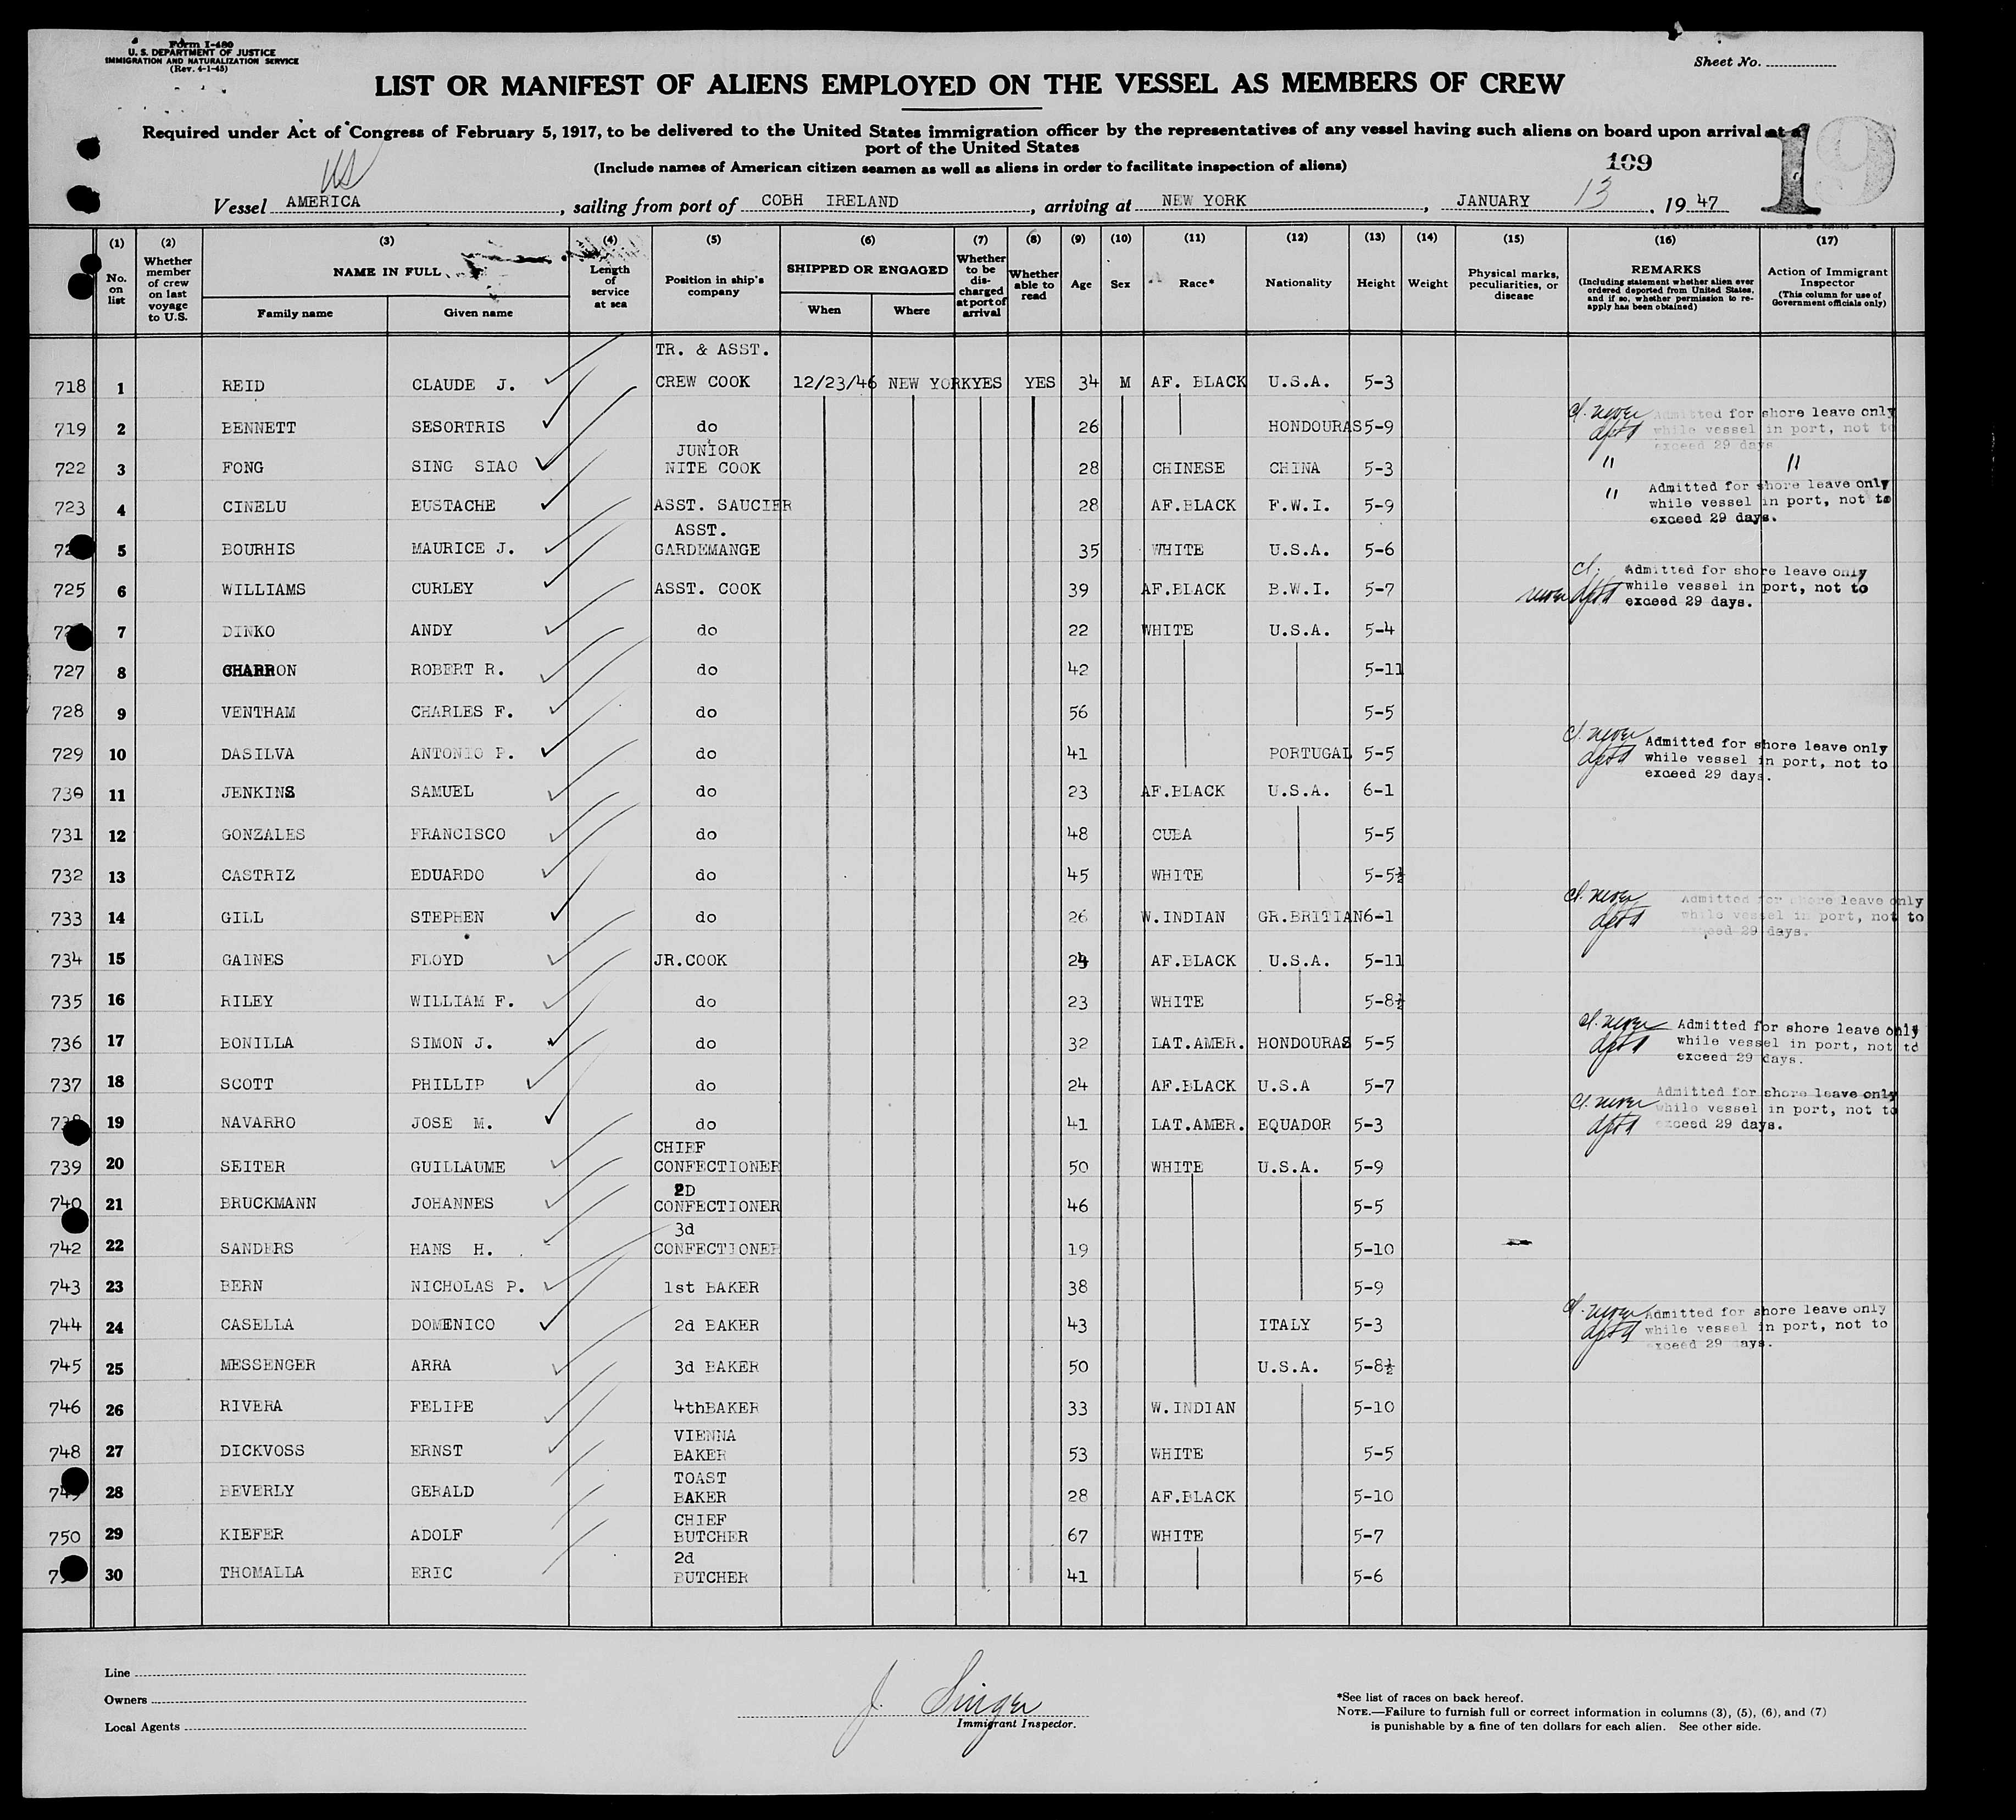 Form I-480
U. S. DEPARTMENT OF JUSTICE
IMMIGRATION AND NATURALIZATION SERVICE
(Rev. 4-1-45)
Sheet No.
LIST OR MANIFEST OF ALIENS EMPLOYED ON THE VESSEL AS MEMBERS OF CREW
Required under Act of Congress of February 5, 1917, to be delivered to the United States immigration officer by the representatives of any vessel having such aliens on board upon arrival at a
port of the United States
(Include names of American citizen seamen as well as aliens in order to facilitate inspection of aliens)
109
19
US
Vessel AMERICA, sailing from port of COBH IRELAND, arriving at NEW YORK, JANUARY 13, 1947
(1) No. on list
(2) Whether member of crew on last voyage to U.S.
(3) NAME IN FULL
Family name Given name
(4) Length of service at sea
(5) Position in ship's company
(6) SHIPPED OR ENGAGED
When Where
(7) Whether to be discharged at port of arrival
(8) Whether able to read
(9) Age
(10) Sex
(11) Race*
(12) Nationality
(13) Height
(14) Weight
(15) Physical marks, peculiarities, or disease
(16) REMARKS (Including statement whether alien ever ordered deported from United States, and if so, whether permission to re-apply has been obtained)
(17) Action of Immigrant Inspector (This column for use of Government officials only)
718 1 REID CLAUDE J. TR. & ASST. CREW COOK 12/23/46 NEW YORK YES YES 34 M AF. BLACK U.S.A. 5-3
719 2 BENNETT SESORTRIS do 26 HONDOURAS 5-9 cl. never dptd Admitted for shore leave only while vessel in port, not to exceed 29 days
722 3 FONG SING SIAO JUNIOR NITE COOK 28 CHINESE CHINA 5-3 " "
723 4 CINELU EUSTACHE ASST. SAUCIER 28 AF.BLACK F.W.I. 5-9 " Admitted for shore leave only while vessel in port, not to exceed 29 days.
5 BOURHIS MAURICE J. ASST. GARDEMANGE 35 WHITE U.S.A. 5-6
725 6 WILLIAMS CURLEY ASST. COOK 39 AF.BLACK B.W.I. 5-7 cl. never dptd Admitted for shore leave only while vessel in port, not to exceed 29 days.
7 DINKO ANDY do 22 WHITE U.S.A. 5-4
727 8 CHARRON ROBERT R. do 42 5-11
728 9 VENTHAM CHARLES F. do 56 5-5
729 10 DASILVA ANTONIO P. do 41 PORTUGAL 5-5 cl. never dptd Admitted for shore leave only while vessel in port, not to exceed 29 days.
730 11 JENKINS SAMUEL do 23 AF.BLACK U.S.A. 6-1
731 12 GONZALES FRANCISCO do 48 CUBA 5-5
732 13 CASTRIZ EDUARDO do 45 WHITE 5-5½
733 14 GILL STEPHEN do 26 W.INDIAN GR.BRITIAN 6-1 cl. never dptd Admitted for shore leave only while vessel in port, not to exceed 29 days.
734 15 GAINES FLOYD JR.COOK 24 AF.BLACK U.S.A. 5-11
735 16 RILEY WILLIAM F. do 23 WHITE 5-8½
736 17 BONILLA SIMON J. do 32 LAT.AMER. HONDOURAS 5-5 cl. never dptd Admitted for shore leave only while vessel in port, not to exceed 29 days.
737 18 SCOTT PHILLIP do 24 AF.BLACK U.S.A 5-7
738 19 NAVARRO JOSE M. do 41 LAT.AMER. EQUADOR 5-3 cl. never dptd Admitted for shore leave only while vessel in port, not to exceed 29 days.
739 20 SEITER GUILLAUME CHIEF CONFECTIONER 50 WHITE U.S.A. 5-9
740 21 BRUCKMANN JOHANNES 2D CONFECTIONER 46 5-5
742 22 SANDERS HANS H. 3d CONFECTIONER 19 5-10
743 23 BERN NICHOLAS P. 1st BAKER 38 5-9
744 24 CASELLA DOMENICO 2d BAKER 43 ITALY 5-3 cl. never dptd Admitted for shore leave only while vessel in port, not to exceed 29 days.
745 25 MESSENGER ARRA 3d BAKER 50 U.S.A. 5-8½
746 26 RIVERA FELIPE 4thBAKER 33 W.INDIAN 5-10
748 27 DICKVOSS ERNST VIENNA BAKER 53 WHITE 5-5
749 28 BEVERLY GERALD TOAST BAKER 28 AF.BLACK 5-10
750 29 KIEFER ADOLF CHIEF BUTCHER 67 WHITE 5-7
30 THOMALLA ERIC 2d BUTCHER 41 5-6
Line
Owners
Local Agents
J. Singer
Immigrant Inspector.
*See list of races on back hereof.
NOTE.—Failure to furnish full or correct information in columns (3), (5), (6), and (7)
is punishable by a fine of ten dollars for each alien. See other side.